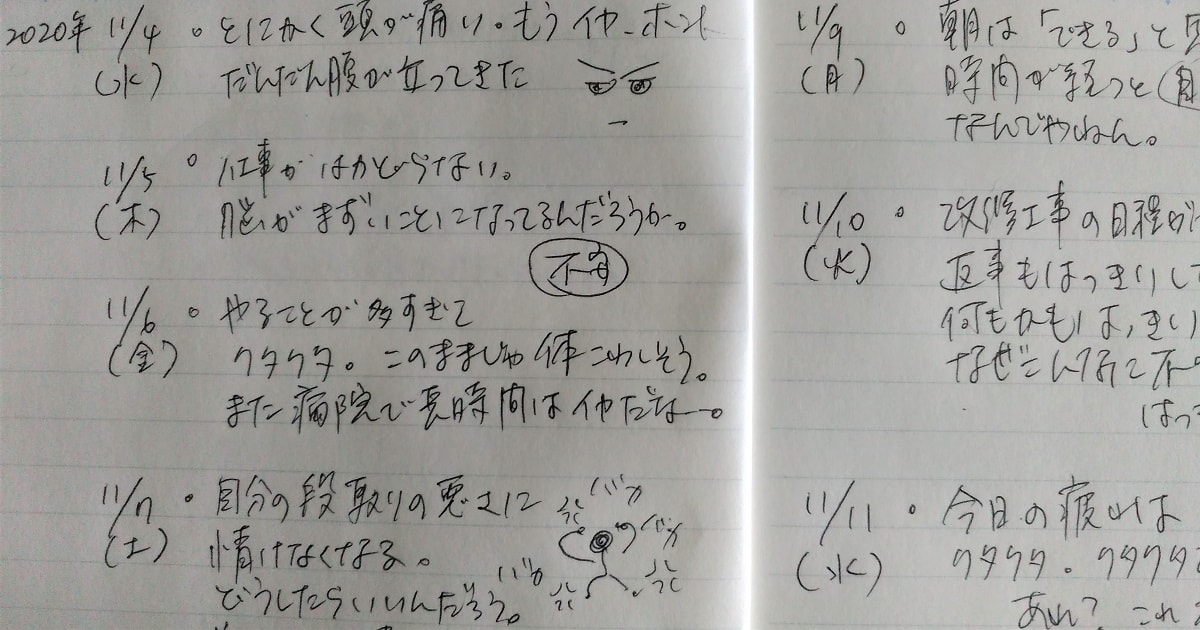 2020年 11/4 。とにかく頭が痛い。もうイヤ、ホント
(水) だんだん腹が立ってきた
11/5 。仕事がはかどらない。
(木) 脳がまずいことになってるんだろうか。
不安
11/6 。やることが多すぎて
(金) クタクタ。このままじゃ体こわしそう。
また病院で長時間はイヤだなー。
11/7 。自分の段取りの悪さに
(土) 情けなくなる。
どうしたらいいんだろう。
バカ
バカ
バカ
11/9 。朝は「できる」と
(月) 時間が経つと
なんでやねん。
11/10 。改修工事の日程が
(火) 返事もはっきりし
何もかもはっきり
なぜこんなに不
はっ
11/11 。今日の疲れは
(水) クタクタ。クタクタ
あれ? これ